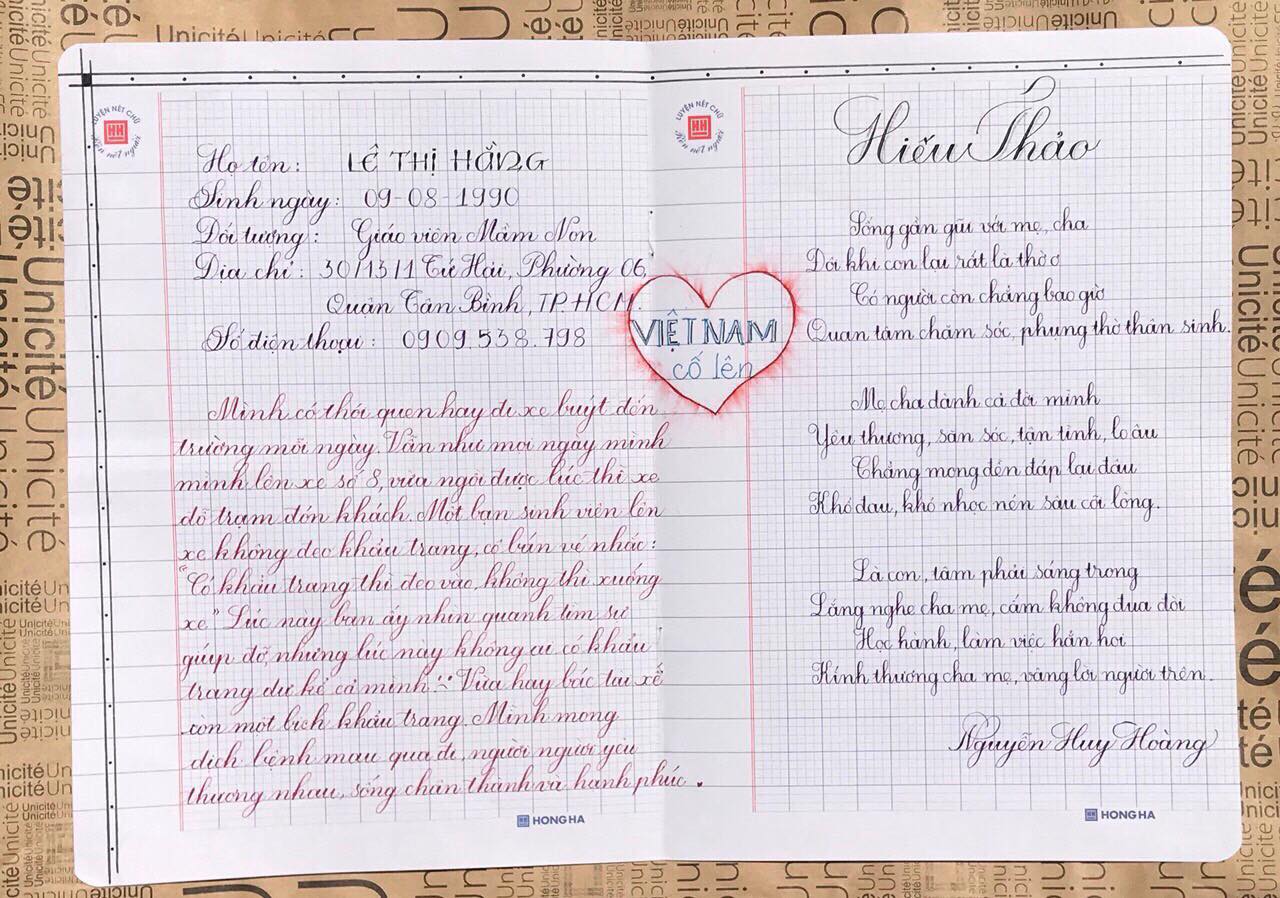 LUYỆN NÉT CHỮ
HH
Rèn nết người
Họ tên: LÊ THỊ HẰNG
Sinh ngày: 09-08-1990
Đối tượng: Giáo viên Mầm Non
Địa chỉ: 30/13/1 Tứ Hải, Phường 06,
Quận Tân Bình, TP.HCM.
Số điện thoại: 0909.538.798
Mình có thói quen hay đi xe buýt đến
trường mỗi ngày. Vẫn như mọi ngày mình
mình lên xe số 8, vừa ngồi được lúc thì xe
đỗ trạm đón khách. Một bạn sinh viên lên
xe không đeo khẩu trang, cô bán vé nhắc:
"Có khẩu trang thì đeo vào, không thì xuống
xe" Lúc này bạn ấy nhìn quanh tìm sự
giúp đỡ, nhưng lúc này không ai có khẩu
trang dư kể cả mình. Vừa hay bác tài xế
còn một bịch khẩu trang. Mình mong
dịch bệnh mau qua đi, người người yêu
thương nhau, sống chân thành và hạnh phúc.
HONG HA
VIỆT NAM
cố lên
LUYỆN NÉT CHỮ
HH
Rèn nết người
Hiếu Thảo
Sống gần gũi với mẹ, cha
Đôi khi con lại rất là thờ ơ
Có người còn chẳng bao giờ
Quan tâm chăm sóc, phụng thờ thân sinh.
Mẹ cha dành cả đời mình
Yêu thương, săn sóc, tận tình, lo âu
Chẳng mong đền đáp lại đâu
Khổ đau, khó nhọc nén sâu cõi lòng.
Là con, tâm phải sáng trong
Lắng nghe cha mẹ, cấm không đua đòi
Học hành, làm việc hẳn hoi
Kính thương cha mẹ, vâng lời người trên.
Nguyễn Huy Hoàng
HONG HA
Unicité